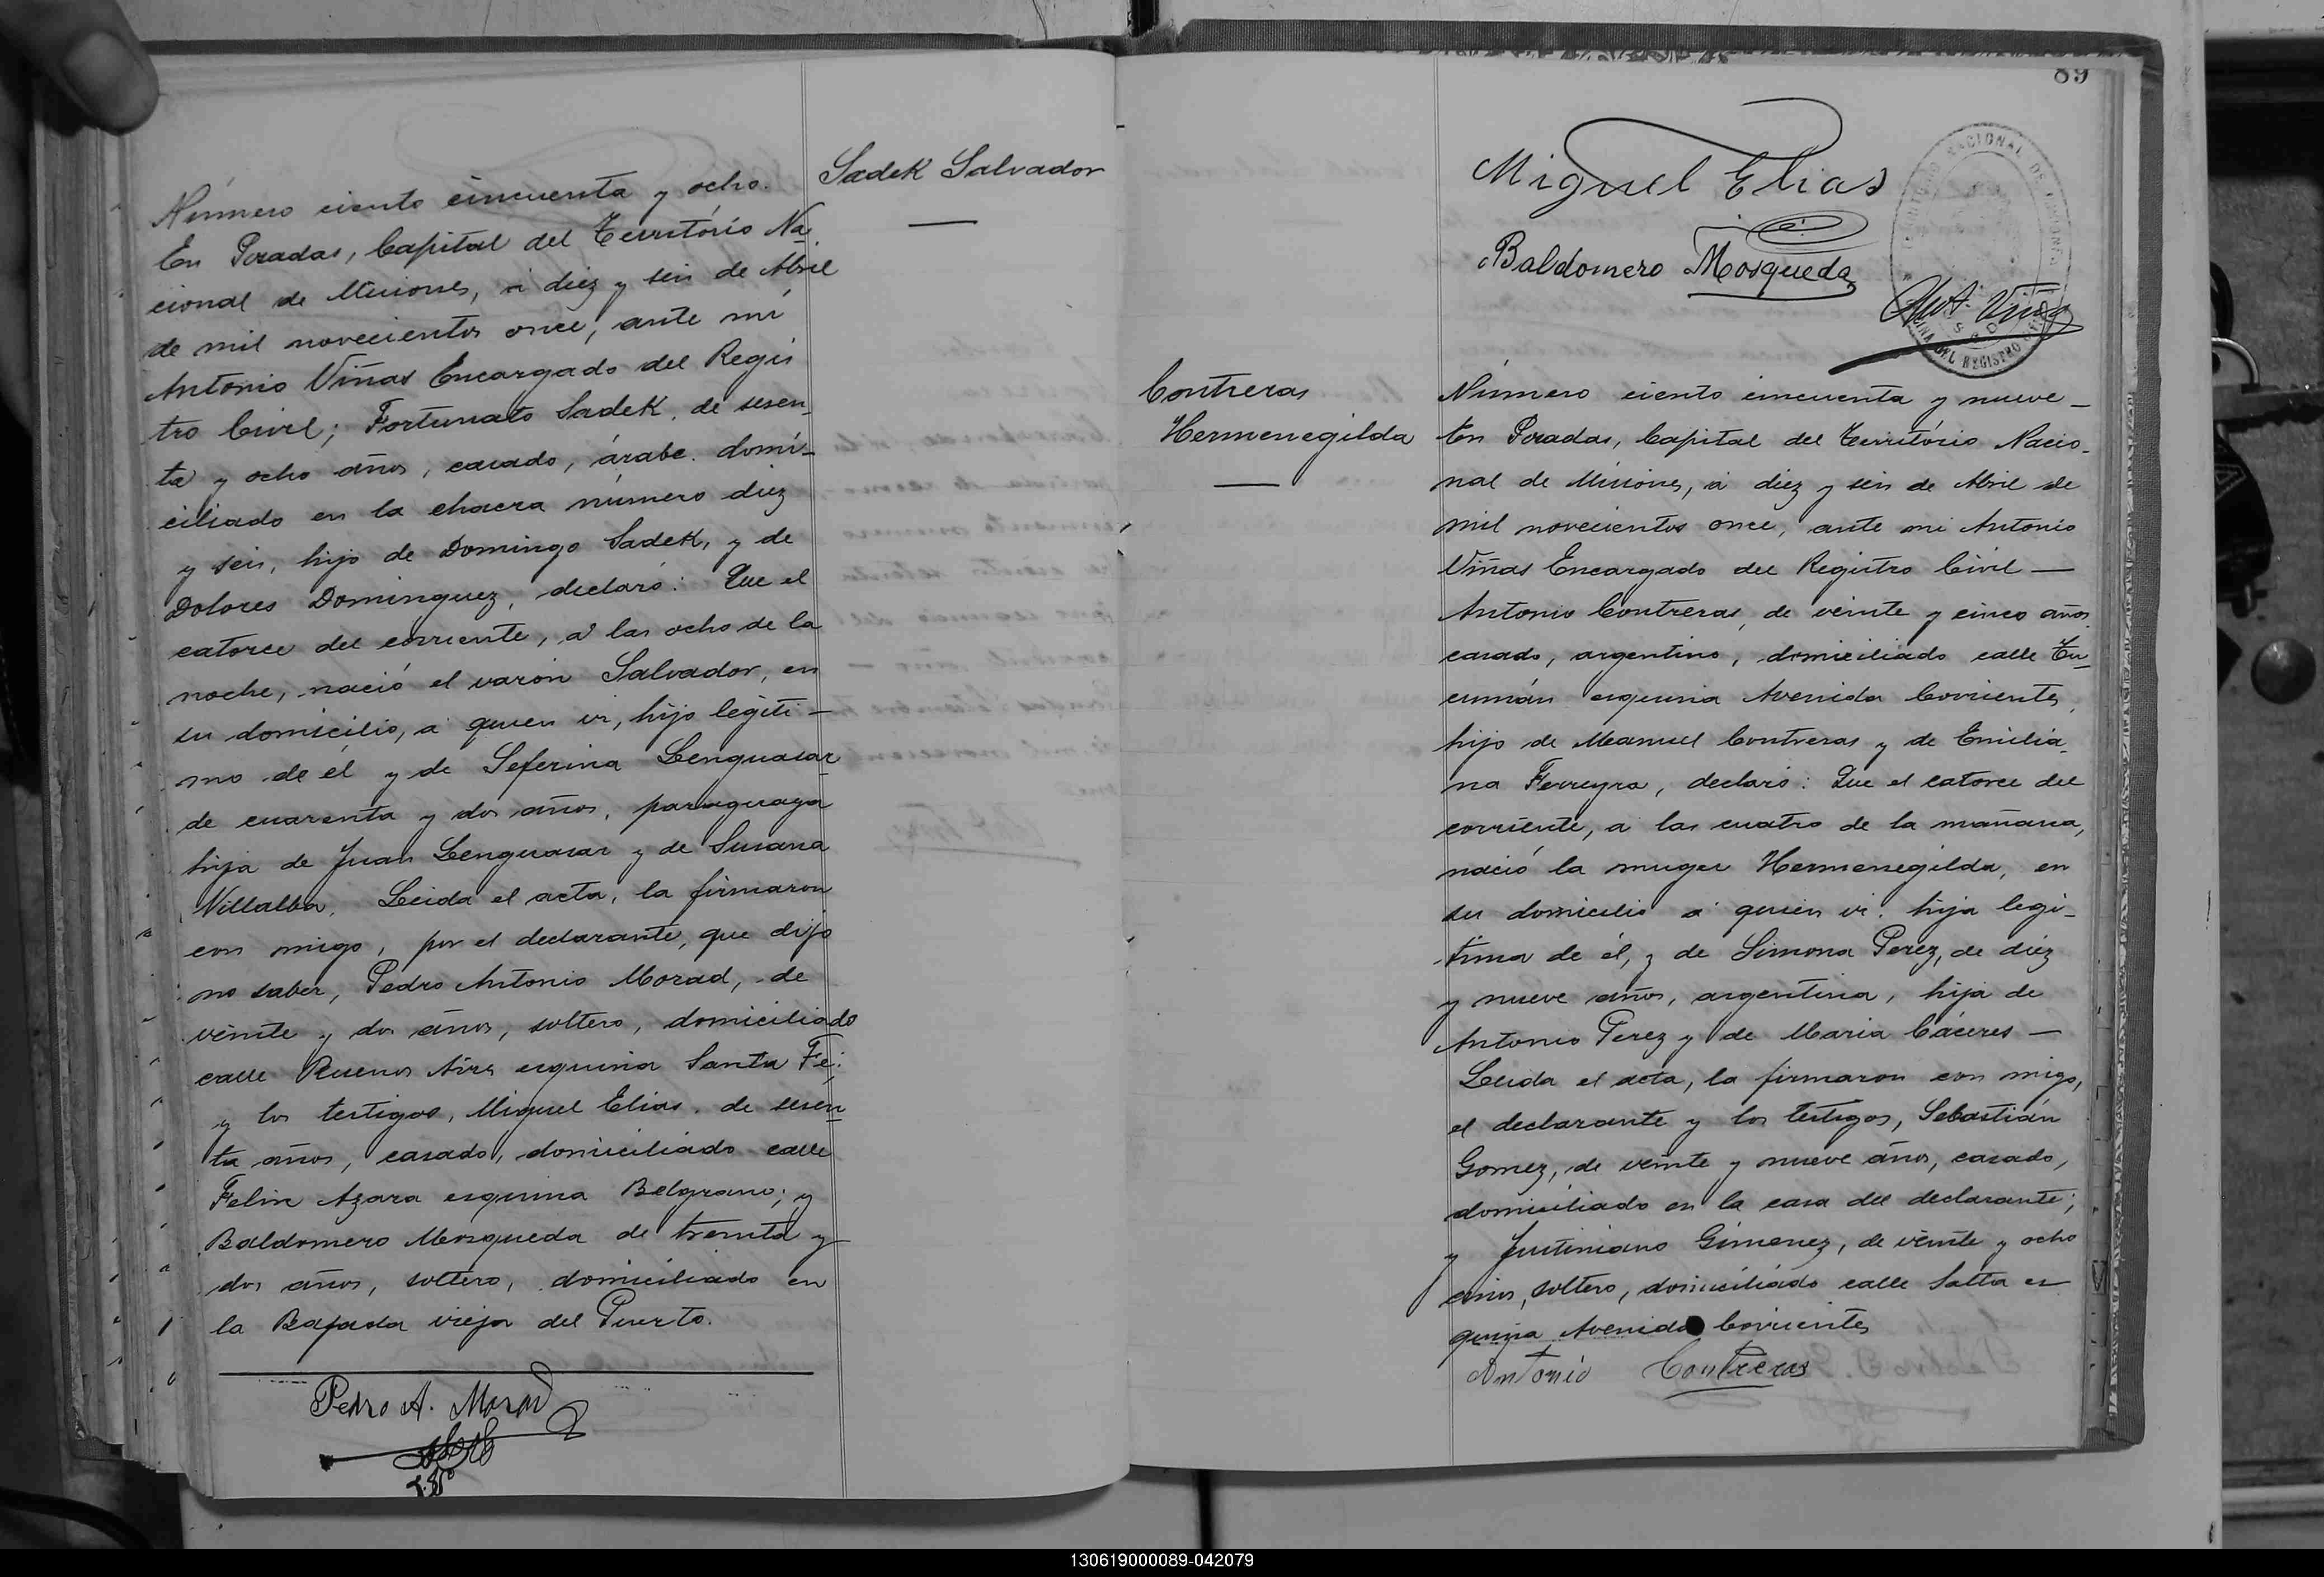 Sadek Salvador
Número ciento cincuenta y ocho.
En Posadas, Capital del Território Na
cional de Misiones, á diez y seis de Abril
de mil novecientos once, ante mí
Antonio Viñas Encargado del Regis
tro Civil; Fortunato Sadek, de sesen
ta y ocho años, casado, árabe, domi-
ciliado en la chacra número diez
y seis, hijo de Domingo Sadek, y de
Dolores Dominguez, declaró: Que el
catorce del corriente, á las ocho de la
noche, nació el varón Salvador, en
su domicilio, á quien vi, hijo legíti-
mo de él y de Seferina Lenguasar
de cuarenta y dos años, paraguaya
hija de Juan Lenguasar y de Susana
Villalba. Leida el acta, la firmaron
con migo, por el declarante, que dijo
no saber, Pedro Antonio Morad, de
veinte y dos años, soltero, domiciliado
calle Buenos Aires esquina Santa Fé;
y los testigos, Miguel Elias, de sesen
ta años, casado, domiciliado calle
Felix Azara esquina Belgrano; y
Baldomero Mosqueda de treinta y
dos años, soltero, domiciliado en
la Bajada vieja del Puerto.
Pedro A. Morad
89
Miguel Elias
Baldomero Mosqueda
Ant. Viñas
NACIONAL DE MISIONES
DEL REGISTRO
Contreras
Hermenegilda
Número ciento cincuenta y nueve-
En Posadas, Capital del Território Nacio-
nal de Misiones, á diez y seis de Abril de
mil novecientos once, ante mi Antonio
Viñas Encargado del Registro Civil —
Antonio Contreras, de veinte y cinco años,
casado, argentino, domiciliado calle Tu-
cumán esquina Avenida Corrientes,
hijo de Manuel Contreras y de Emilia-
na Ferreyra, declaró: Que el catorce del
corriente, á las cuatro de la mañana,
nació la muger Hermenegilda, en
su domicilio á quien vi, hija legí-
tima de él, y de Simona Perez, de diez
y nueve años, argentina, hija de
Antonio Perez y de Maria Cáceres —
Leida el acta, la firmaron con migo,
el declarante y los testigos, Sebastián
Gomez, de veinte y nueve años, casado,
domiciliado en la casa del declarante;
y Justiniano Gimenez, de veinte y ocho
años, soltero, domiciliado calle Salta es
quina Avenida Corrientes
Antonio Contreras
130619000089-042079